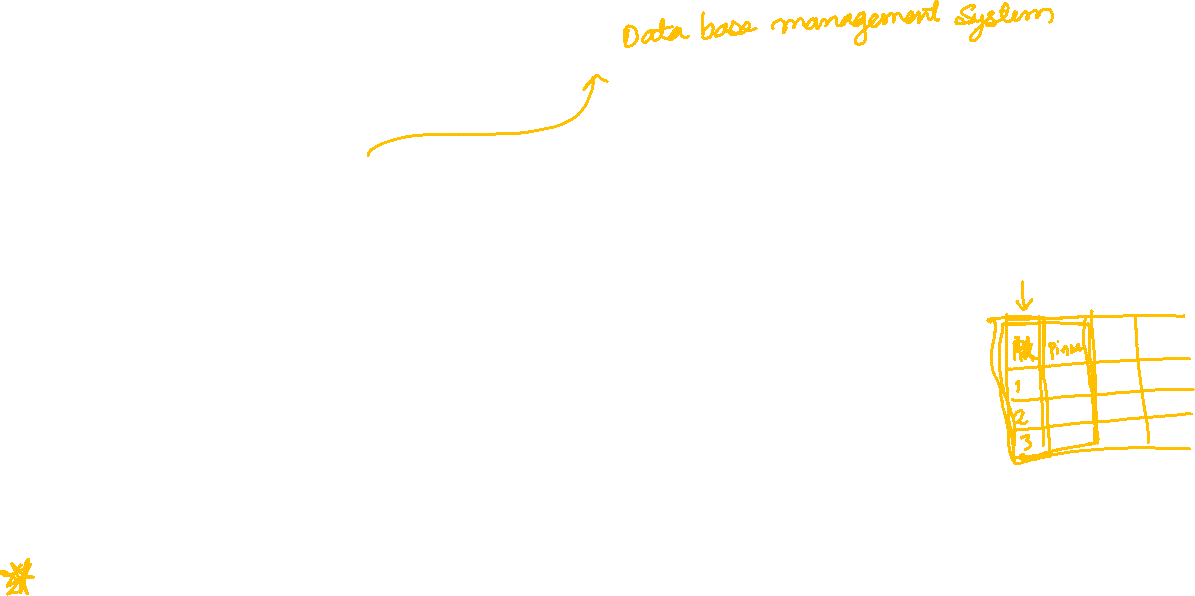 Data base management System
1
2
3